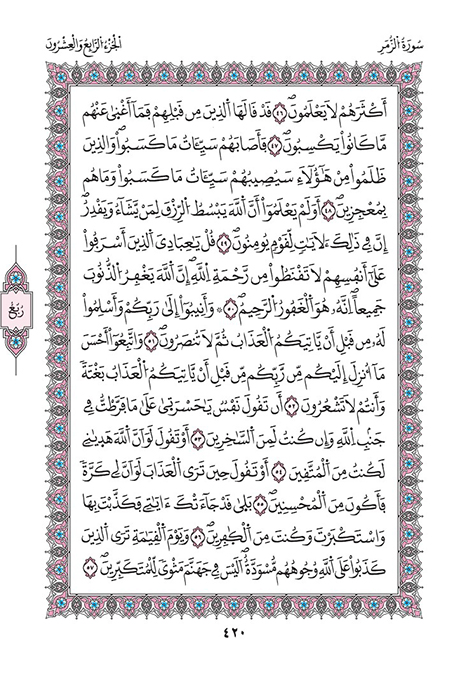 سُورَةُ الزُّمَرِ
اَلْجُزْءُ الرَّابِعُ وَالْعِشْرُونَ
أَكْثَرَهُمْ لَا يَعْلَمُونَ ٤٦ قَدْ قَالَهَا اَلذِينَ مِن قَبْلِهِمْ فَمَا أَغْنَىٰ عَنْهُم
مَّا كَانُواْ يَكْسِبُونَ ٤٧ فَأَصَابَهُمْ سَيِّـَٔاتُ مَا كَسَبُواْ وَالذِينَ
ظَلَمُواْ مِنْ هَٰٓؤُلَآءِ سَيُصِيبُهُمْ سَيِّـَٔاتُ مَا كَسَبُواْ وَمَا هُم
بِمُعْجِزِينَ ٤٨ أَوَلَمْ يَعْلَمُواْ أَنَّ اَللَّهَ يَبْسُطُ اُلرِّزْقَ لِمَنْ يَّشَآءُ وَيَقْدِرُ
إِنَّ فِي ذَٰلِكَ لَأٓيَٰتٍ لِّقَوْمٍ يُومِنُونَ ٤٩ قُلْ يَٰعِبَادِيَ اَلذِينَ أَسْرَفُواْ
عَلَىٰ أَنفُسِهِمْ لَا تَقْنَطُواْ مِن رَّحْمَةِ اِللَّهِ إِنَّ اَللَّهَ يَغْفِرُ اُلذُّنُوبَ
جَمِيعاً اِنَّهُۥ هُوَ اَلْغَفُورُ اُلرَّحِيمُ ٥٠ ۞ وَأَنِيبُواْ إِلَىٰ رَبِّكُمْ وَأَسْلِمُواْ
لَهُۥ مِن قَبْلِ أَنْ يَّاتِيَكُمُ اُلْعَذَابُ ثُمَّ لَا تُنصَرُونَ ٥١ وَاتَّبِعُواْ أَحْسَنَ
مَآ أُنزِلَ إِلَيْكُم مِّن رَّبِّكُم مِّن قَبْلِ أَنْ يَّاتِيَكُمُ اُلْعَذَابُ بَغْتَةً
وَأَنتُمْ لَا تَشْعُرُونَ ٥٢ أَن تَقُولَ نَفْسٌ يَٰحَسْرَتَىٰ عَلَىٰ مَا فَرَّطتُّ فِي
جَنۢبِ اِللَّهِ وَإِن كُنتُ لَمِنَ اَلسَّٰخِرِينَ ٥٣ أَوْ تَقُولَ لَوَ اَنَّ اَللَّهَ هَدَىٰنِي
لَكُنتُ مِنَ اَلْمُتَّقِينَ ٥٤ أَوْ تَقُولَ حِينَ تَرَى اَلْعَذَابَ لَوَ اَنَّ لِي كَرَّةً
فَأَكُونَ مِنَ اَلْمُحْسِنِينَ ٥٥ بَلَىٰ قَدْ جَآءَتْكَ ءَايَٰتِي فَكَذَّبْتَ بِهَا
وَاسْتَكْبَرْتَ وَكُنتَ مِنَ اَلْكَٰفِرِينَ ٥٦ وَيَوْمَ اَلْقِيَٰمَةِ تَرَى اَلذِينَ
كَذَبُواْ عَلَى اَللَّهِ وُجُوهُهُم مُّسْوَدَّةٌ اَلَيْسَ فِي جَهَنَّمَ مَثْوىً لِّلْمُتَكَبِّرِينَ ٥٧
رُبُع
٤٢٠